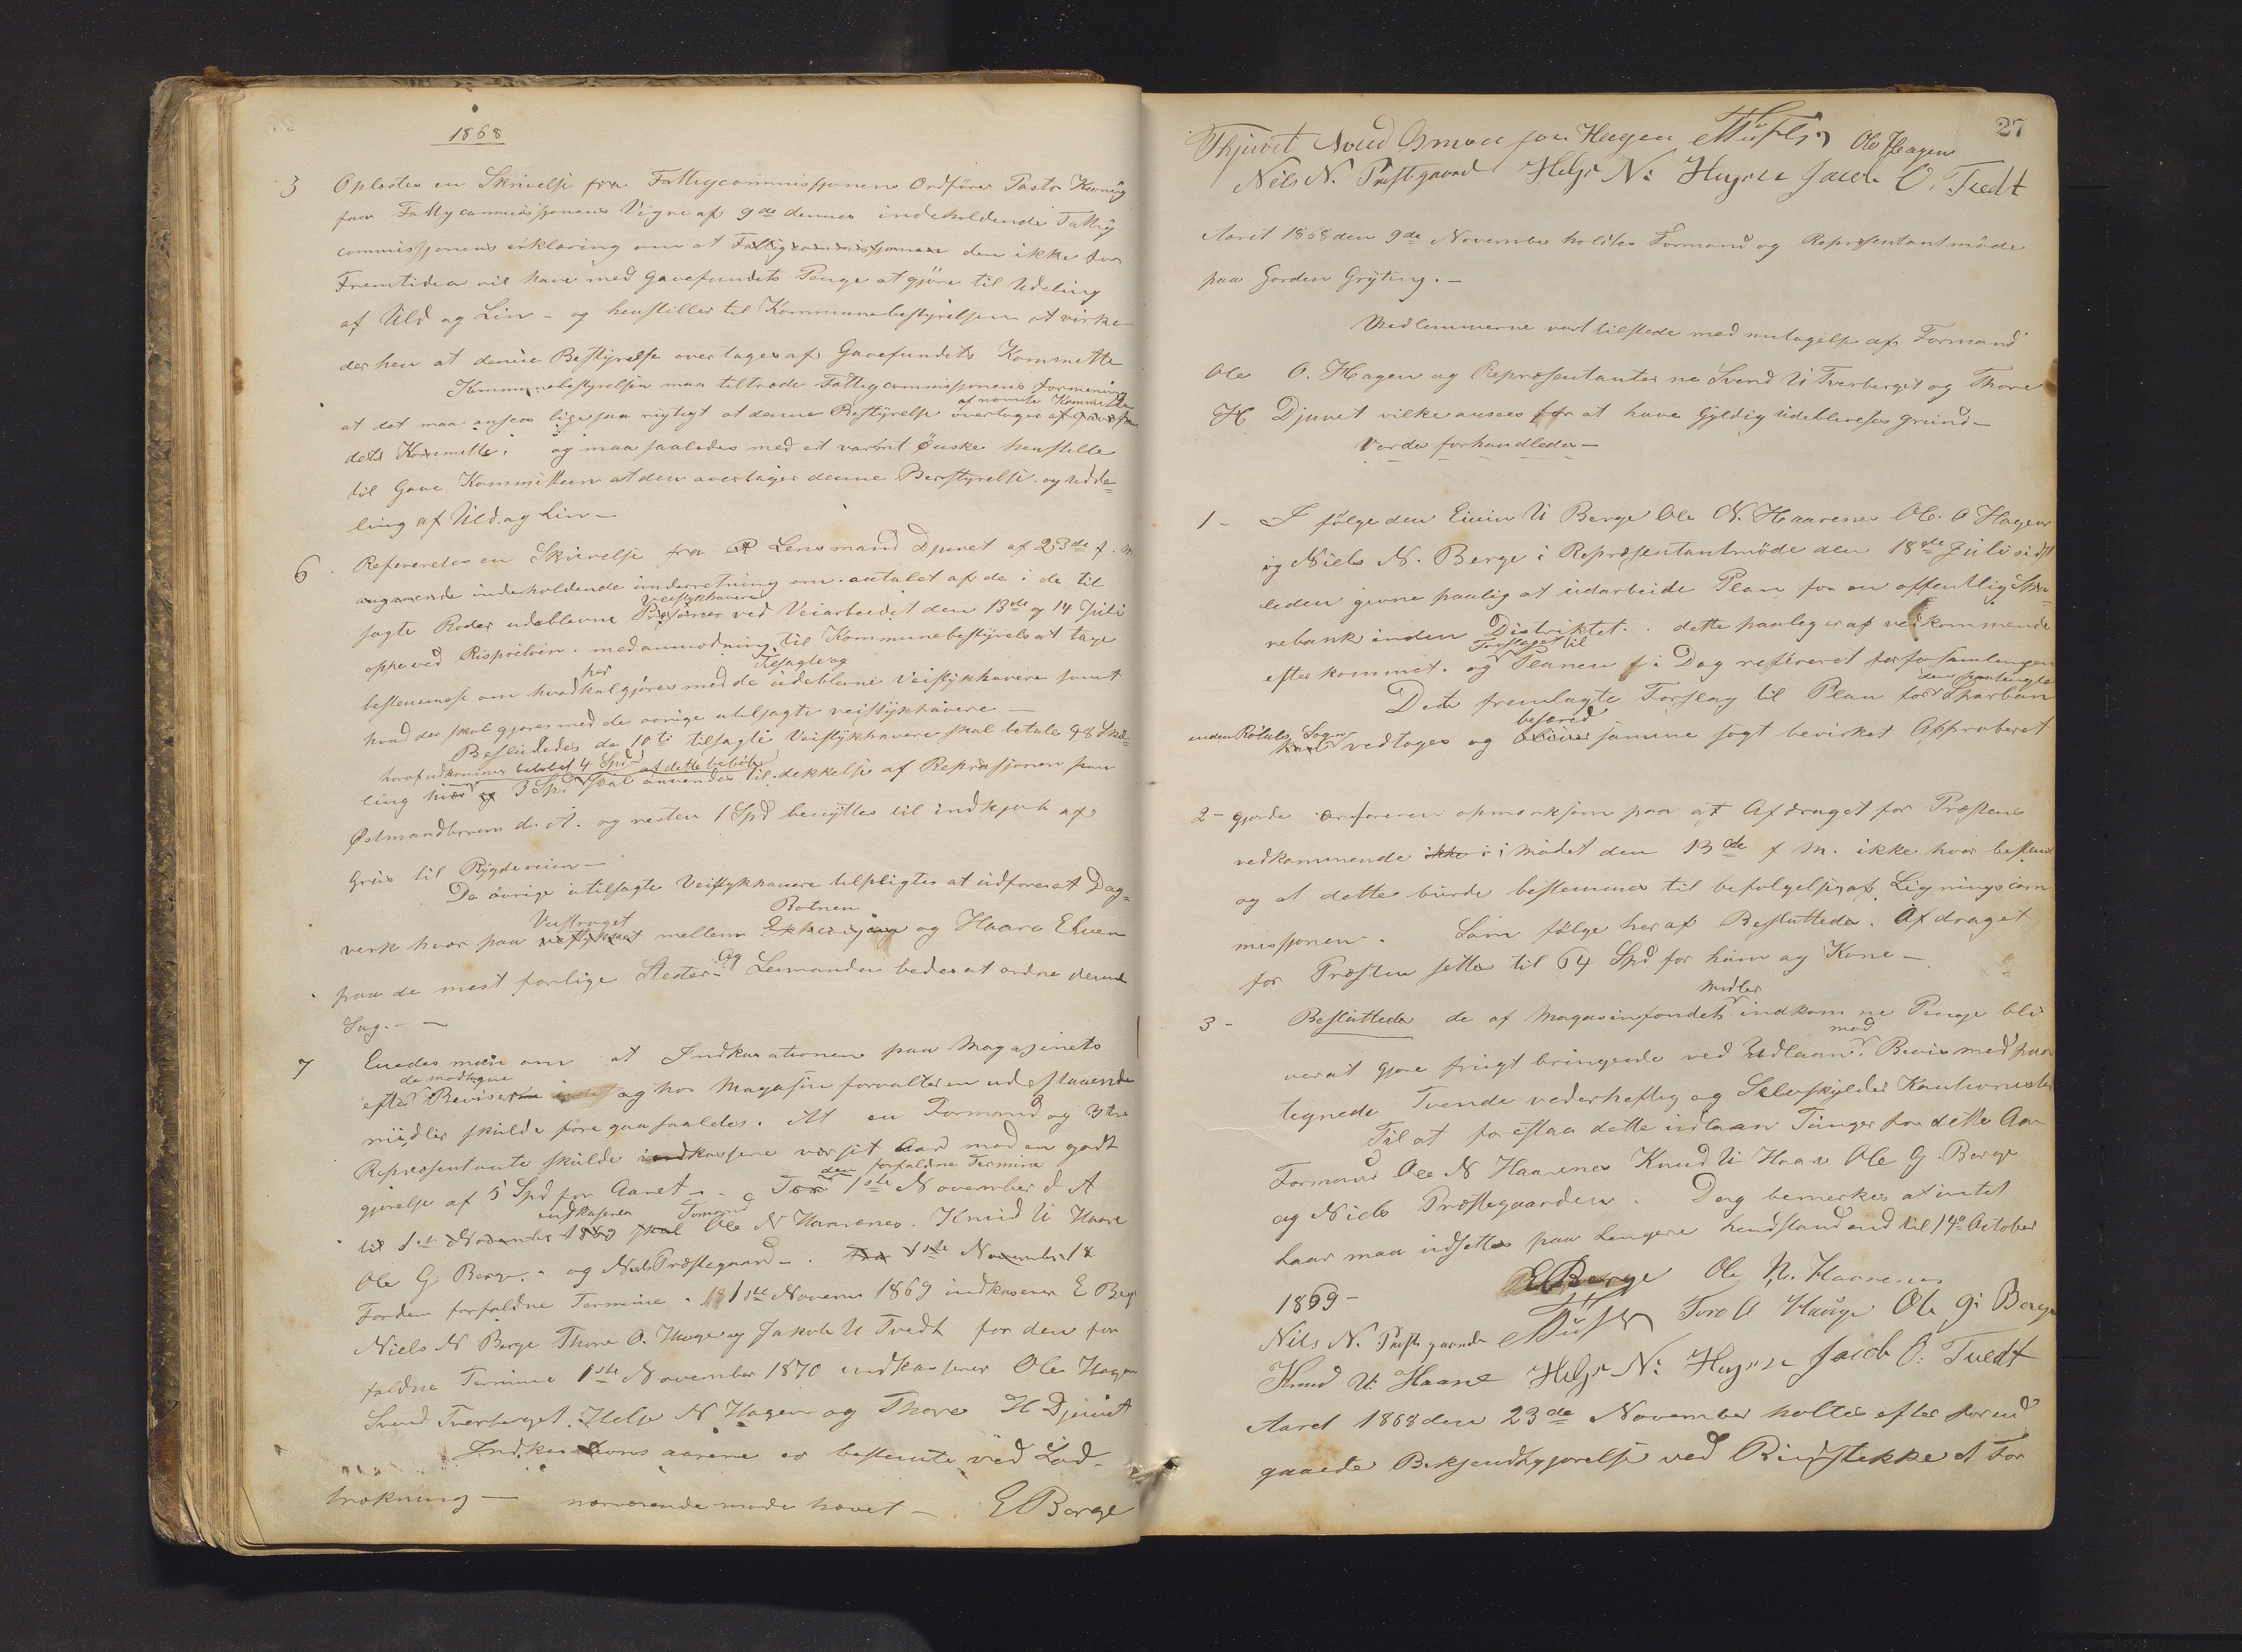 1868
3 Oplæstes en Skrivelse fra Fattigcommissjonens Ordfører Pastor
paa Fattigcommissjonens Vegne af 9de dennes indeholdende Fattig
commissjonens erklæring om at Fattigcommissjonen den ikke for
Fremtiden vil have med Gavefundets Penge at gjøre til Udeling
af Uld og Lin - og henstiller til Kommunebestyrelsen at virke
der hen at denne Bestyrelse overtages af Gavefundets Kommette
Kommunebestyrelsen maa tiltræde Fattigcommissjonens formening
af nævnte Kommitte
at det maa ansees lige saa rigtigt at denne Bestyrelse overtages af Gavefun
dets Kommette. og maa saaledes med et varmt Ønske henstille
til Gave Kommitteen at den overtager denne Berstyrelse og udde=
ling af Uld og Lin -
6. Refereretes en Skrivelse fra Lensmand Djuvet af 23de f. M.
angaaende indeholdende underretning om antalet af de i de til
veistykhavere
sagte Roder udeblevne Personer ved Veiarbeidet den 13de og 14 Juli
oppe ved med anmodning til Kommunebestyrels at tage
her Tilsagte og
bestemmese om hvad skal gjøres med de udeblevne Veistykhavere samt
hvad der skal gjøres med de øvrige utilsagte veistykhavere -
Besluttedes de 10 ti tilsagte Veistykhavere skal betale 48 Skil=
heraf udkommer beløbet 4 Spd af dette beløb
ling hver og 3 Spd skal anvendes til dekkelse af Reprasjonen paa
Østmandbroen d. A. og resten 1 Spd benyttes til indkjøb af
Grus til Bygdeveien -
De øvrige utilsagte Veistykhavere tilpligtes at udføre et Dag=
Veistraget Botnen
verk hver paa mellem og Haara Elven
paa de mest farlige Steder - Og Lensmanden bedes at ordne denne
Sag. -
7 Enedes man om at Indkasationen paa Magasinets
de modtagne
efter Beviser og hos Magasin forvalteren udestaaende
midler skulde foregaa saaledes. At en Formand og 3 tre
Repræsentanter skulde indkassere vær sit Aar mod en godt
den forfaldne Termine
gjørelse af 5 Spd for Aaret - For 1ste November d A
indkaserer Formand
til 1ste November 1869 skal Ole N Haarenes. Knud U Haare
Ole G. Berge. og Nils Præstegaard - Fra 1ste November 18
For den forfaldne Termine 1ste November 1869 indkaserer E Berge
Niels N Berge Thore O. Hauge og Jakob U Tvedt for den for
faldne Termine 1ste November 1870 indkasserer Ole Hagen
Svend Tverberget. Helje N Hagen og Thore H Djuvet
Indkasations aarene er bestemte ved Lod-
trækning - nærværende møde hævet - E Berge
27
Ole Hagen
Nils N. Præstgaard Helje N: Hagen Jacob O. Tvedt
Aaret 1868 den 9de November holdtes Formand og Representantmøde
paa Garden Gryting. -
Medlemmerne vart tilstede med untagelse af Formand
Ole O. Hagen og Representanter ne Svend U Tverberget og Thore
H Djuvet vilke ansees for at have Gyldig Udeblevelses grund -
Vorde forhandledes -
1 - I følge den Eivin U Berge Ole N. Haarenes Ole O Hagen
og Niels N. Berge i Repræsentantmøde den 18de Juli sidst
leden givne paalæg at udarbeide Plan for en offentlig Spa=
rebank inden Distriktet. dette paalæg er af vedkommende
Forslaget til
efterkommet. og Planen i Dag refereret for forsamlingen
den paatænkte
Det fremlagte Forslag til Plan for Sparban
inden Røldals Sogn besøred
vedtages og samme søgt bevirket Approberet
2 - gjorde ordføreren opmærksom paa at Afdraget for Præstens
vedkommende ikke i i Mødet den 13de f M. ikke hver bestemt
og at dette burde bestemmes til befølgelse af Ligningscom
missjonen. Som følge her af Besluttedes. Afdraget
for Præsten settes til 64 Spd for ham og Kone -
midler
3 - Besluttedes de af Magasinfondets indkom ne Penge bli
mod
verat gjøre frugt bringende ved Udlaan. Bevis med paa
tegnede Tvende vederheftig og Selvskylder Kautionister
Til at forestaa dette udlaan Tænges for dette Aar
Formand Ole N Haarenes Knud U Haar Ole G. Berge
og Niels Præstegaarden. Dog bemerkes at intet
Laan maa udsettes paa Længere henstand end til 14de October
1869 - E Berge Ole N. Haarenes
Nils N. Præstgaarde Tore O Hauge Ole G: Berge
Knud U. Haare Helje N: Hagen Jacob O. Tvedt
Aaret 1868 den 23de November holtes efter forud
gaaede Bekjendtgjørelse ved Kirstekke et For